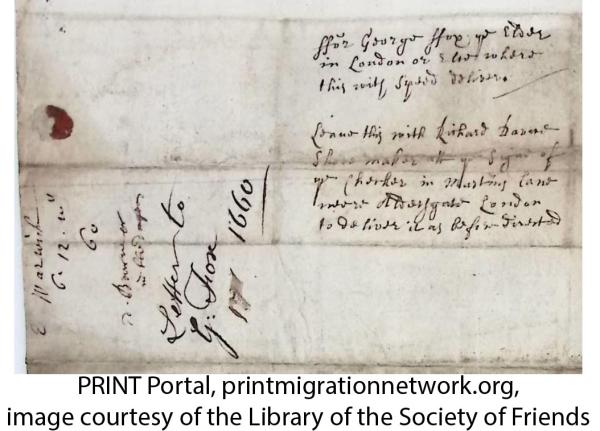 ffor George ffox ye Elder
in London or Elsewhere
this with speed deliver.
Leave this with Richard
Shoe maker att ye Signe of
ye Checker in Martins lane
neere Aldersgate London
to deliver it as before directed
Letter to
G: Fox
1660
E Warwick
6. 12. mo
60
PRINT Portal, printmigrationnetwork.org,
image courtesy of the Library of the Society of Friends